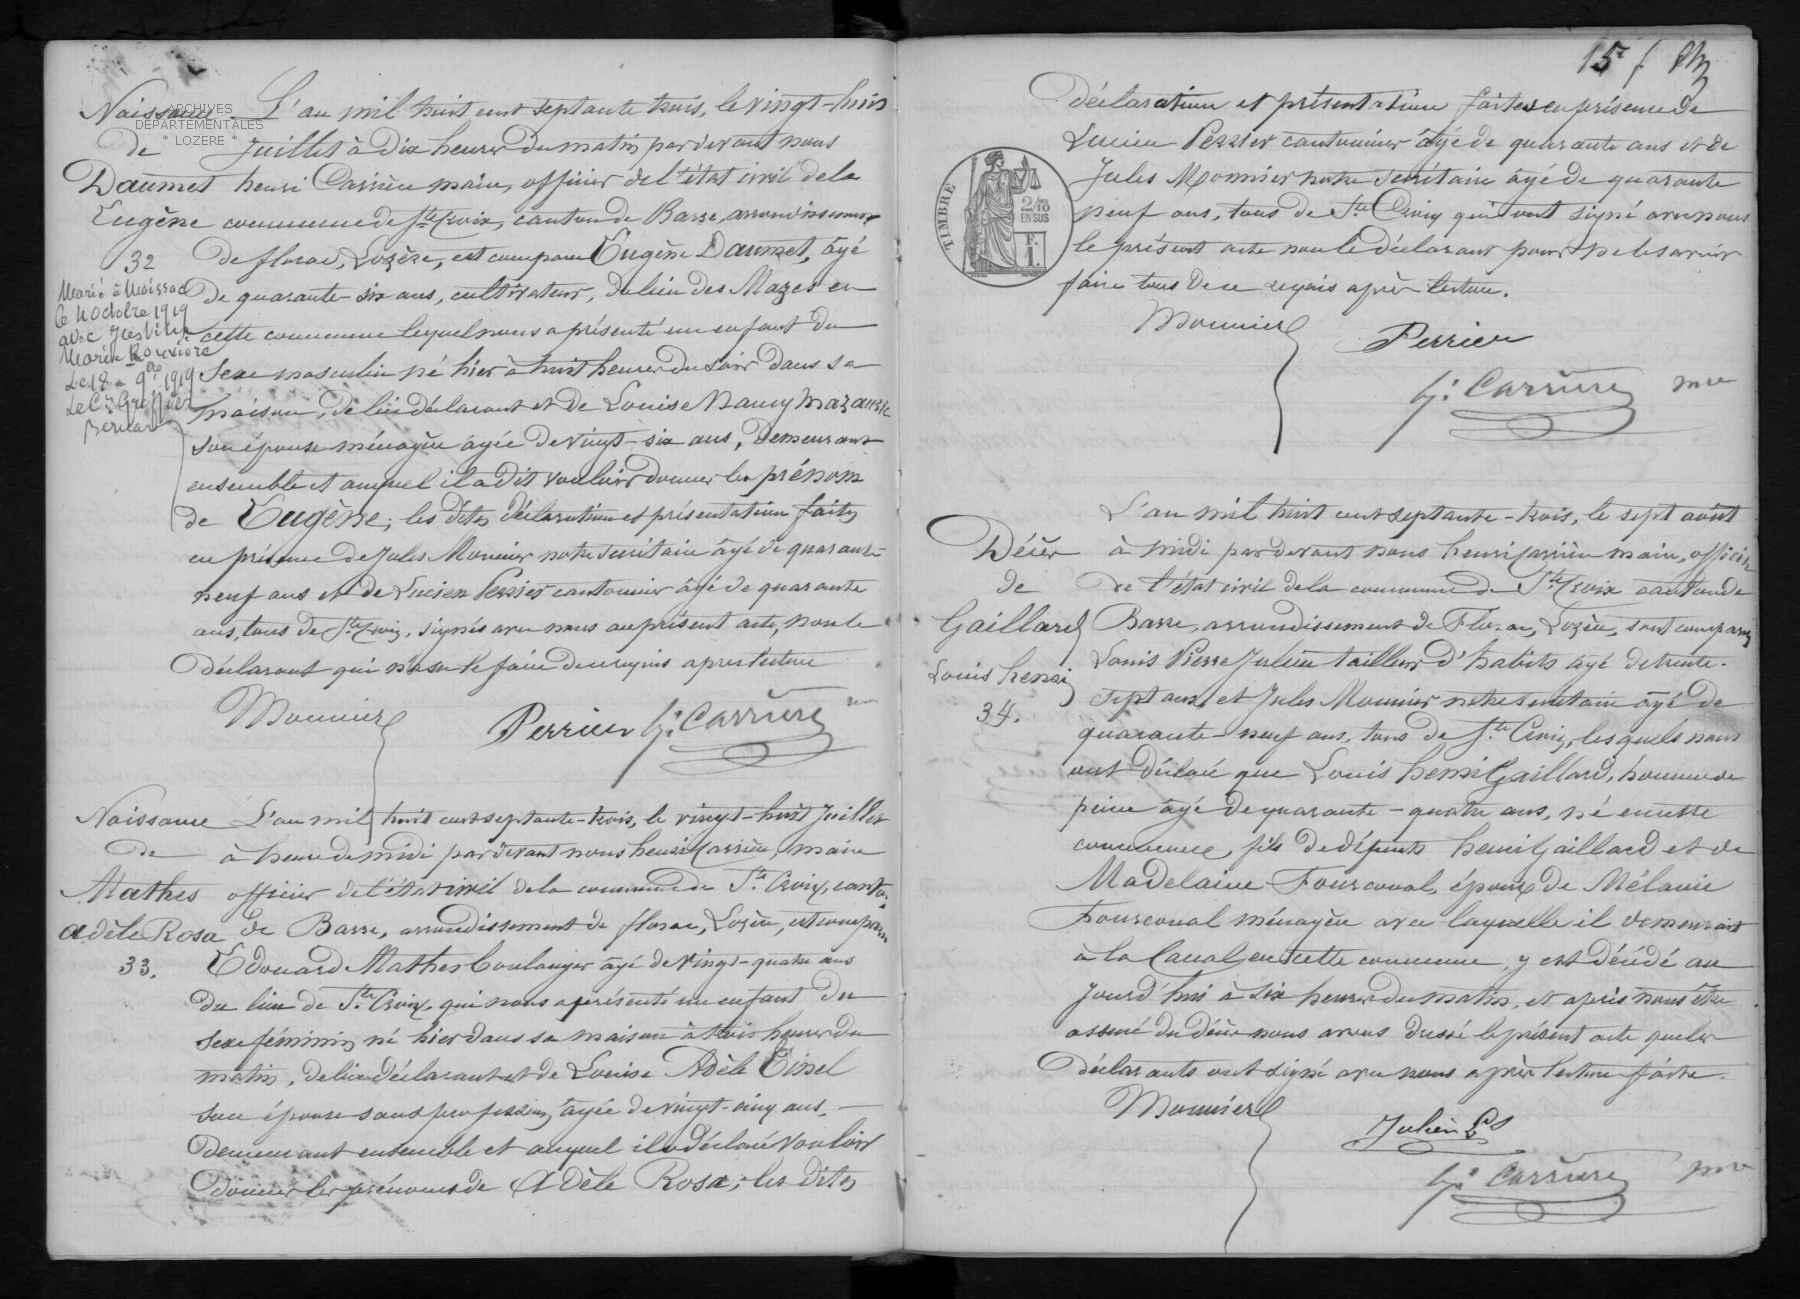 ARCHIVES
DEPARTEMENTALES
" LOZERE "
Naissance L'an mil huit cent septante trois, le vingt-huit
de Juillet à dix heures du matin par devant nous
Daumet henri Carrière maire, officier de l'état civil de la
Eugène commune de Ste Croix, canton de Barre, arrondissement
32 de florac, Lozère, est comparu Eugène Daumet, âgé
de quarante-six ans, cultivateur, du lieu des Mazes en
cette commune lequel nous a présenté un enfant du
sexe masculin né hier à huit heures du soir dans sa
maison, de lui déclarant et de Louise Nancy Mazauric
son épouse ménagère âgée de vingt-six ans, demeurant
ensemble et auquel il a dit vouloir donner les prénom
de Eugène; les dites déclaration et présentation faites
en présence de Jules Monnier notre secrétaire âgé de quarante-
neuf ans et de Lucien Perrier cantonnier âgé de quarante
ans, tous de Ste Croix, signés avec nous au présent acte, non le
déclarant qui n'a su le faire de ce requis après lecture
Marié à Moissac
le 4 Octobre 1919
avec
Marie Rouvière
Le 18 9bre 1919
Le Cis Greffier
Monnier
Perrier
h: Carrière
Naissance L'an mil huit cent septante-trois, le vingt-huit Juillet
de à heure de midi par devant nous henri Carrière, maire
Mathes officier de l'état civil de la commune de Ste Croix, canton
adèle Rosa de Barre, arrondissement de florac, Lozère, est comparu
33. Edouard Mathes boulanger âgé de vingt-quatre ans
du lieu de Ste Croix qui nous a présenté un enfant du
sexe féminin né hier dans sa maison à trois heures du
matin, de lui déclarant et de Louise Adèle
son épouse sans profession, âgée de vingt-cinq ans,
demeurant ensemble et auquel il a déclaré vouloir
donner les prénoms de Adèle Rosa; les dites
15e f.
déclaration et présentation faites en présence de
Lucien Perrier cantonnier âgé de quarante ans et de
Jules Monnier notre secrétaire âgé de quarante
neuf ans, tous de Ste Croix qui ont signé avec nous
le présent acte non le déclarant pour ne le savoir
faire tous de ce requis après lecture.
TIMBRE
2/10
EN SUS
F.
1.
Monnier
Perrier
h: Carrière mre
L'an mil huit cent septante-trois, le sept août
Décès à midi par devant nous henri Carrière maire, officier
de de l'état civil de la commune de Ste Croix canton de
Gaillard Barre, arrondissement de Florac, Lozère, sont comparus
Louis henri Louis Pierre Julien tailleur d'habits âgé de trente-
34. sept ans et Jules Monnier notre secrétaire âgé de
quarante-neuf ans, tous de Ste Croix, lesquels nous
ont déclaré que Louis henri Gaillard, homme de
peine âgé de quarante-quatre ans, né en cette
commune, fils de défunts henri Gaillard et de
Madelaine Fourcoual, époux de Mélanie
Fourcoual ménagère avec laquelle il demeurait
à la Canal en cette commune, y est décédé au
jourd'hui à six heures du matin, et après nous être
assuré du décès nous avons dressé le présent acte que les
déclarants ont signé avec nous après lecture faite.
Monnier
Julien Ls
h: Carrière mre